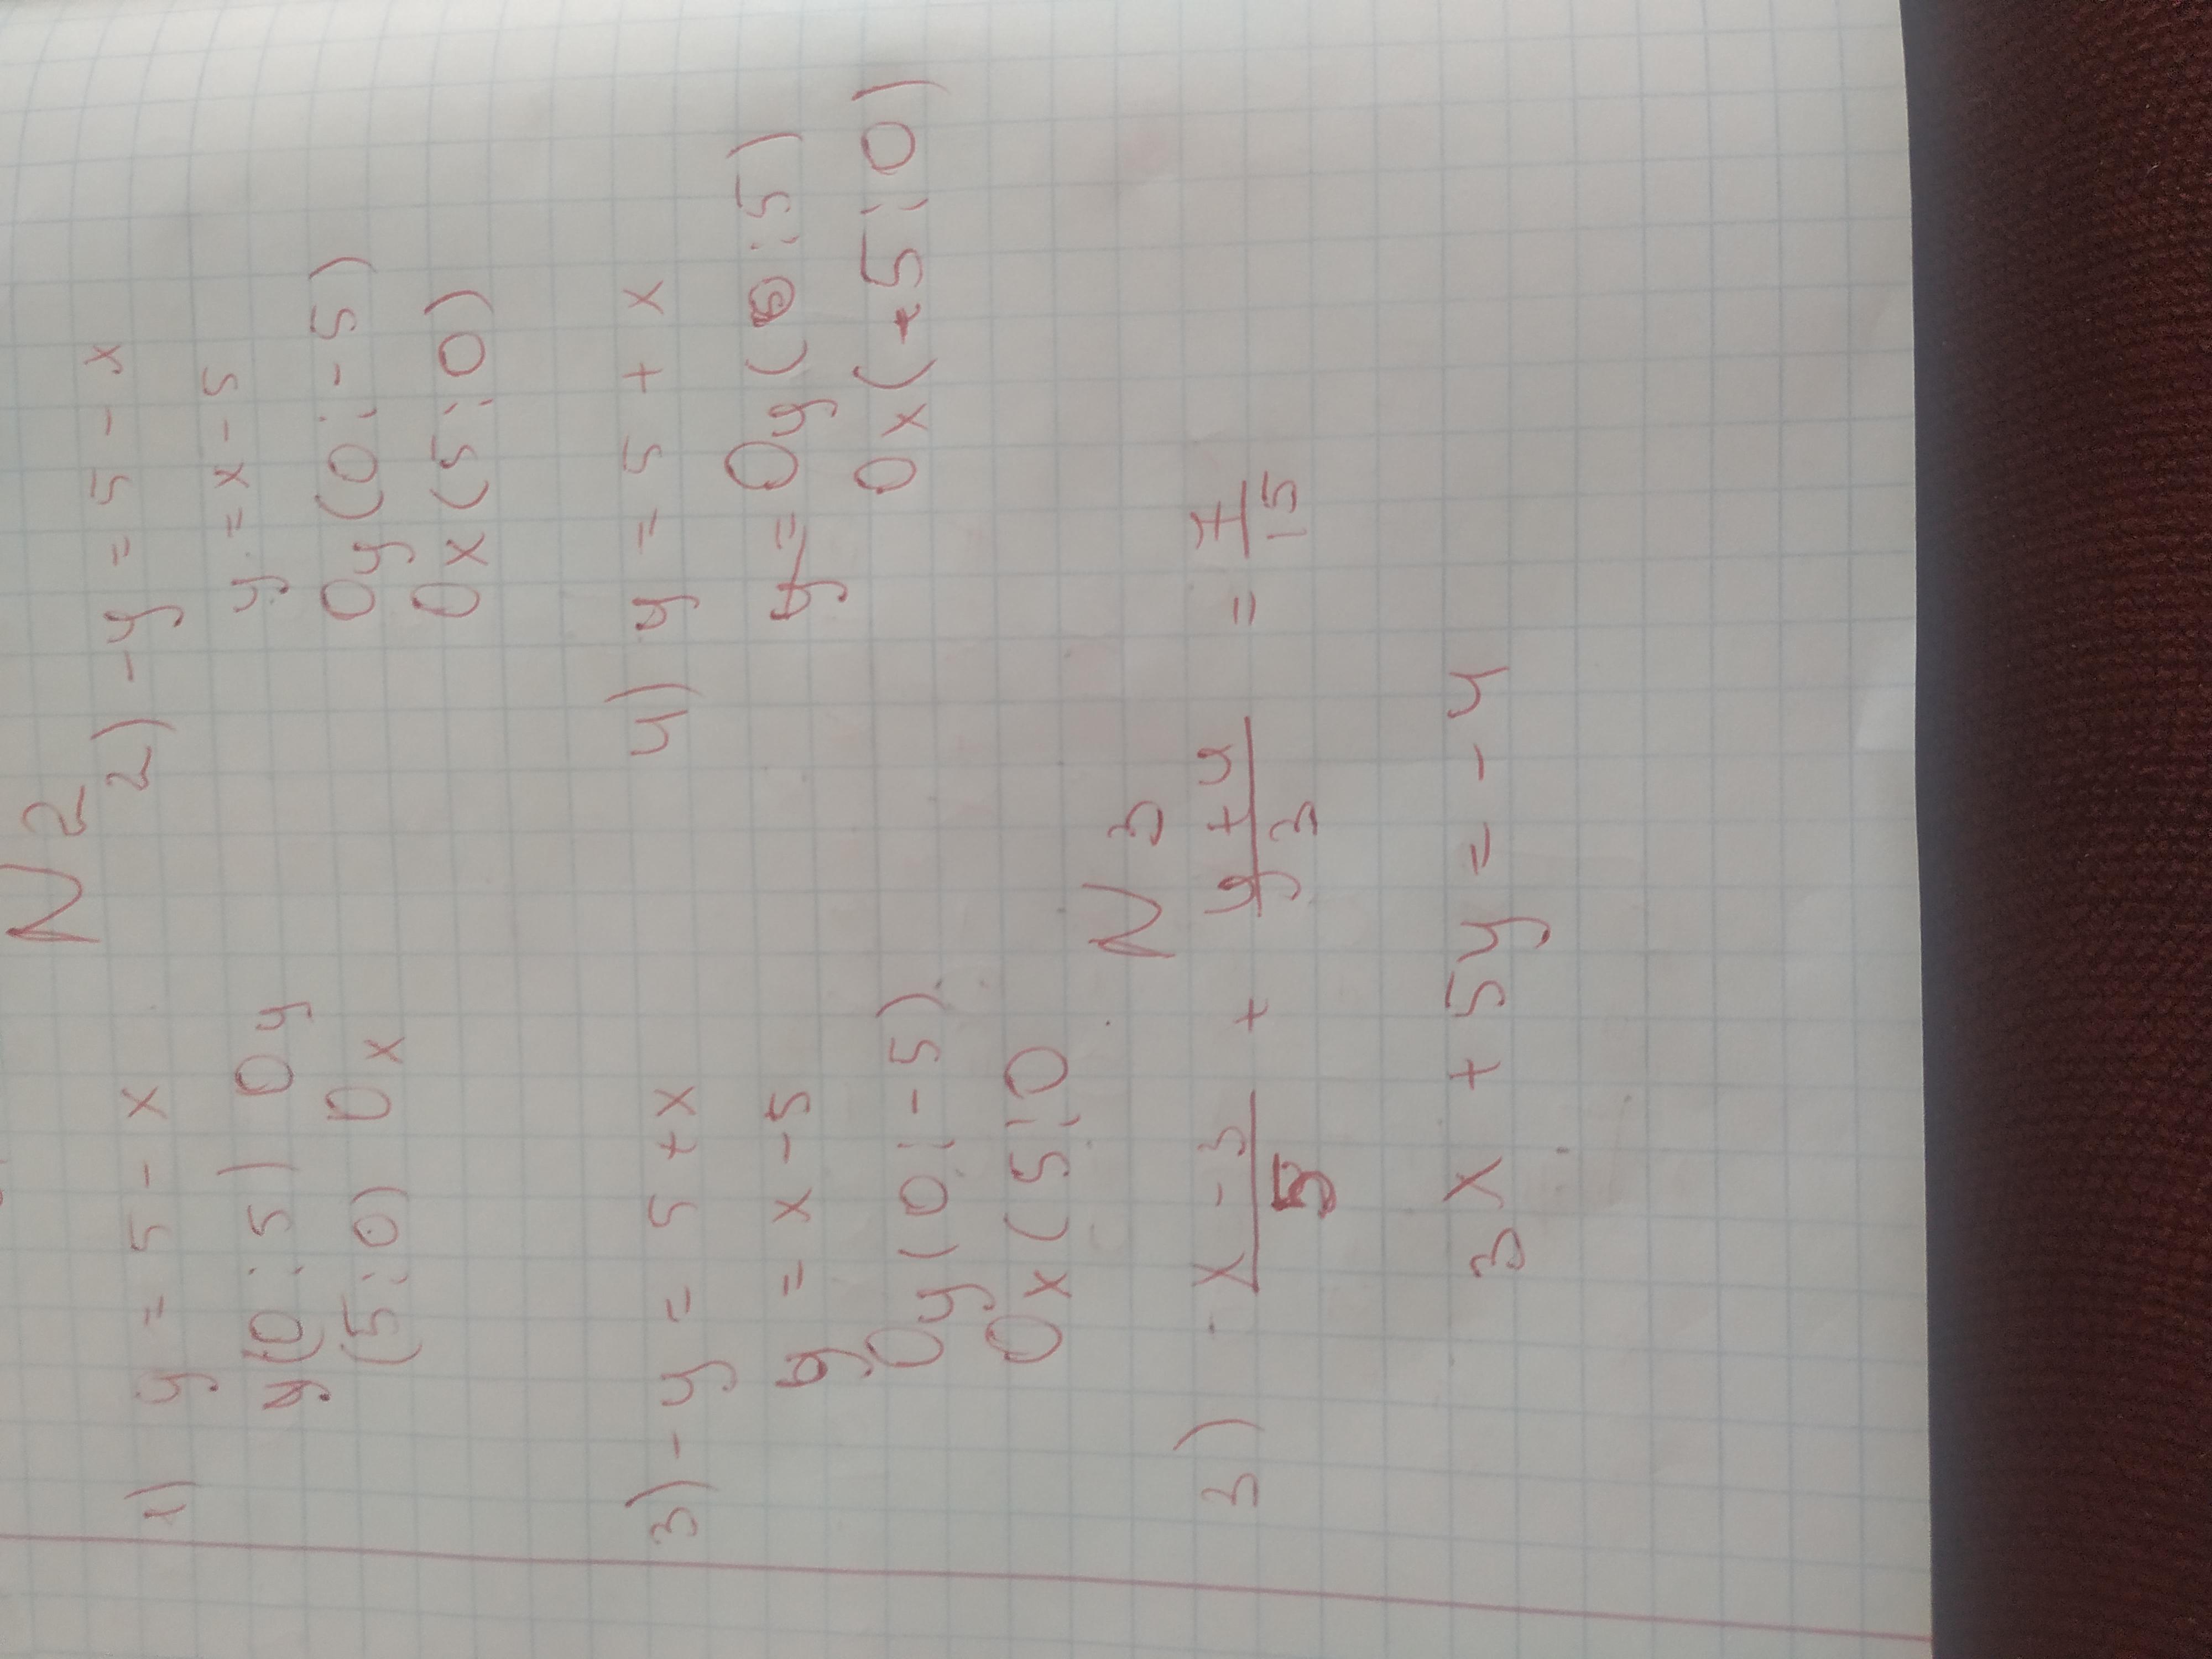 N 2
1) y = 5 - x
y(0 ; 5) 0y
(5 ; 0) 0x
2) -y = 5 - x
y = x - 5
0y (0 ; -5)
0x (5 ; 0)
3) -y = 5 + x
y = x - 5
0y (0 ; -5)
0x (5 ; 0
4) y = 5 + x
y = 0y (0 ; 5)
0x (-5 ; 0)
N 3
3) x - 3 / 5 + y + 4 / 3 = 7 / 15
3x + 5y = -4